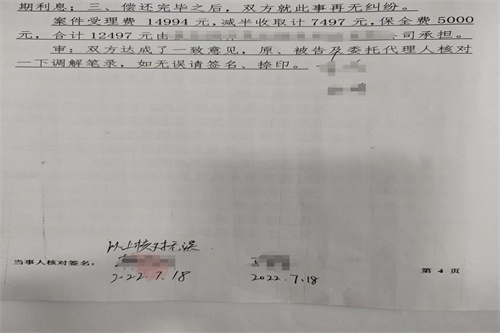 期利息；三、偿还完毕之后，双方就此事再无纠纷。
案件受理费 14994 元，减半收取计 7497 元，保全费 5000
元，合计 12497 元由司承担。
审：双方达成了一致意见，原、被告及委托代理人核对
一下调解笔录，如无误请签名、捺印。
以上核对无误
当事人核对签名：
2022.7.18 2022.7.18
第 4 页